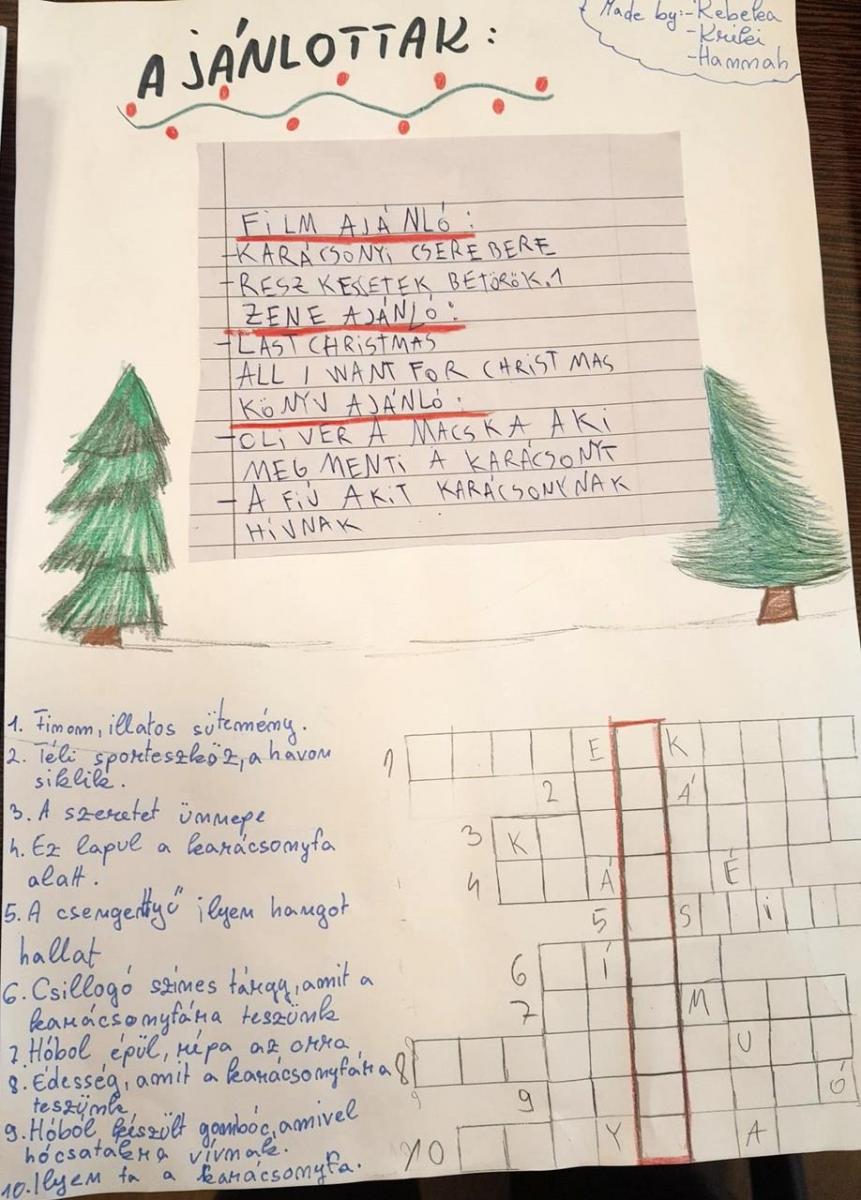 Made by:-Rebeka
-Kribi
-Hannah
AJÁNLOTTAK:
FILM AJÁNLÓ:
-KARÁCSONYI CSEREBERE
-RESZKESSETEK BETÖRŐK.1
ZENE AJÁNLÓ:
-LAST CHRISTMAS
ALL I WANT FOR CHRISTMAS
KÖNYV AJÁNLÓ:
-OLIVER A MACSKA AKI
MEGMENTI A KARÁCSONYT
-A FIÚ AKIT KARÁCSONYNAK
HÍVNAK
1. Finom, illatos sütemény.
2. Téli sporteszköz, a havon
siklik.
3. A szeretet ünnepe
4. Ez lapul a karácsonyfa
alatt.
5. A csengettyű ilyen hangot
hallat
6. Csillogó színes tárgy, amit a
karácsonyfára teszünk
7. Hóbol épül, répa az orra
8. Édesség, amit a karácsonyfára
teszünk
9. Hóból készült gombóc, amivel
hócsatákra vívnak.
10. Ilyen fa a karácsonyfa.
1 E K
2 Á
3 K
4 Á É
5 S i
6 Í
7 M
8 U
9 Ó
10 Y A